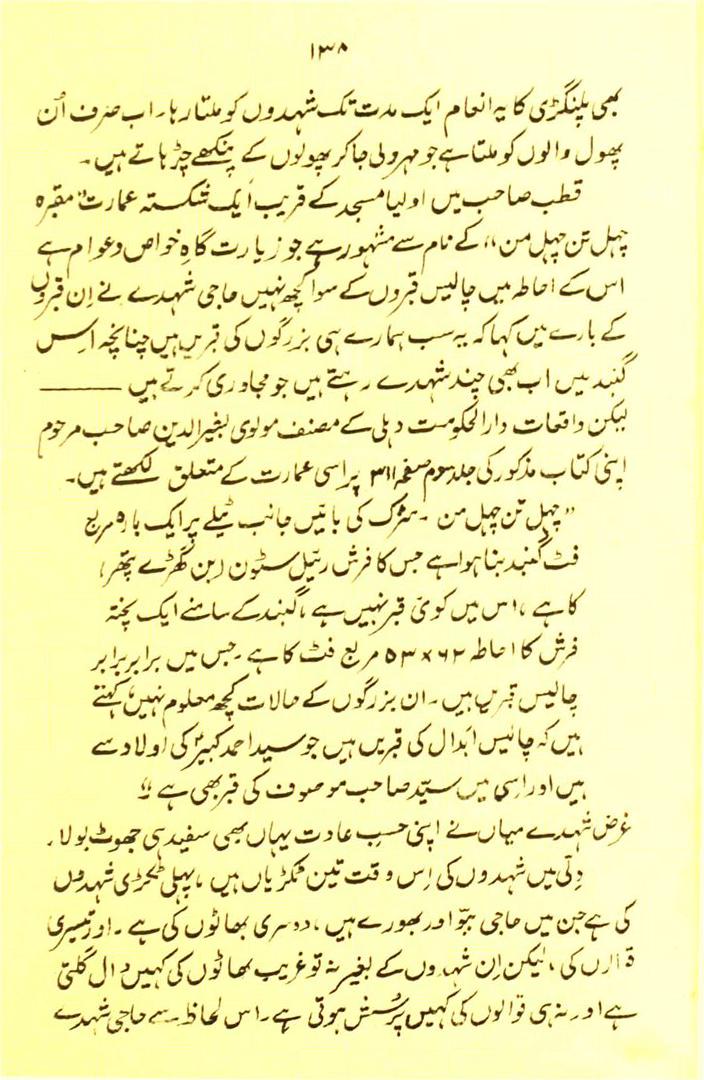 ۱۳۸
بھی پلنگڑی کا یہ انعام ایک مدت تک شہدوں کو ملتا رہا۔ اب صرف اُن
پھول والوں کو ملتا ہے جو مہرولی جا کر پھولوں کے پنکھے چڑہاتے ہیں۔
قطب صاحب میں اولیا مسجد کے قریب ایک شکستہ عمارت "مقبرہ
چہل تن چہل من" کے نام سے مشہور ہے جو زیارت گاہِ خواص و عوام ہے
اس کے احاطہ میں چالیس قبروں کے سوا کچھ نہیں حاجی شہدے نے اِن قبروں
کے بارے میں کہا کہ یہ سب ہمارے ہی بزرگوں کی قبریں ہیں چنانچہ اس
گنبد میں اب بھی چند شہدے رہتے ہیں جو مجاوری کرتے ہیں ـــــــــ
لیکن واقعات دارالحکومت دہلی کے مصنف مولوی بشیرالدین صاحب مرحوم
اپنی کتاب مذکور کی جلد سوم صفحہ ۳۱۱ پر اسی عمارت کے متعلق لکھتے ہیں۔
"چہل تن چہل من۔ سڑک کی بائیں جانب ٹیلے پر ایک بارہ مربع
فٹ گنبد بنا ہوا ہے جس کا فرش ربّل سٹون (بن گھڑے پتھر)
کا ہے، اس میں کوئی قبر نہیں ہے، گنبد کے سامنے ایک پختہ
فرش کا احاطہ ۶۲×۵۳ مربع فٹ کا ہے۔ جس میں برابر برابر
چالیس قبریں ہیں۔ ان بزرگوں کے حالات کچھ معلوم نہیں، کہتے
ہیں کہ چالیس ابدال کی قبریں ہیں جو سید احمد کبیرؒ کی اولاد سے
ہیں اور اسی میں سیّد صاحب موصوف کی قبر بھی ہے۔"
غرض شہدے میاں نے اپنی حسبِ عادت یہاں بھی سفید ہی جھوٹ بولا۔
دِلّی میں شہدوں کی اِس وقت تین ٹکڑیاں ہیں، پہلی ٹکڑی شہدوں
کی ہے جن میں حاجی ببّو اور بھورے ہیں، دوسری بھاٹوں کی ہے۔ اور تیسری
قوالوں کی، لیکن اِن شہدوں کے بغیر نہ تو غریب بھاٹوں کی کہیں دال گلتی
ہے اور نہ ہی قوالوں کی کہیں پُرسش ہوتی ہے۔ اس لحاظ سے حاجی شہدے